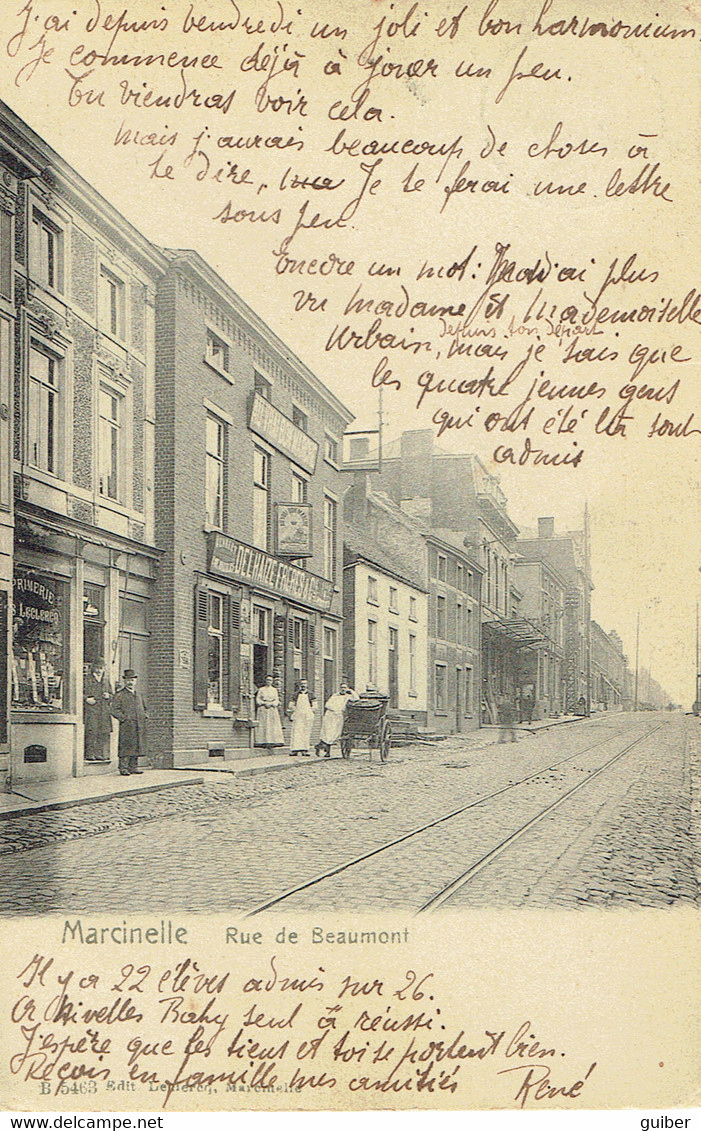 J'ai depuis vendredi un joli et bon harmonium,
Je commence déjà à jouer un peu.
Tu viendras voir cela.
Mais j'aurais beaucoup de choses à
te dire, Je te ferai une lettre
sous peu.
Encore un mot: j'ai plus
vu madame et mademoiselle
depuis ton départ
Urbain, mais je sais que
les quatre jeunes gens
qui ont été là sont
admis
DELHAIZE FRÈRES & Cie
LECLERCQ
Marcinelle Rue de Beaumont
Il y a 22 élèves admis sur 26.
Or Nivelles Bahy seul a réussi.
J'espère que les tiens et toi se portent bien.
Reçois en famille mes amitiés René
B 5463 Edit Leclercq, Marcinelle
guiber